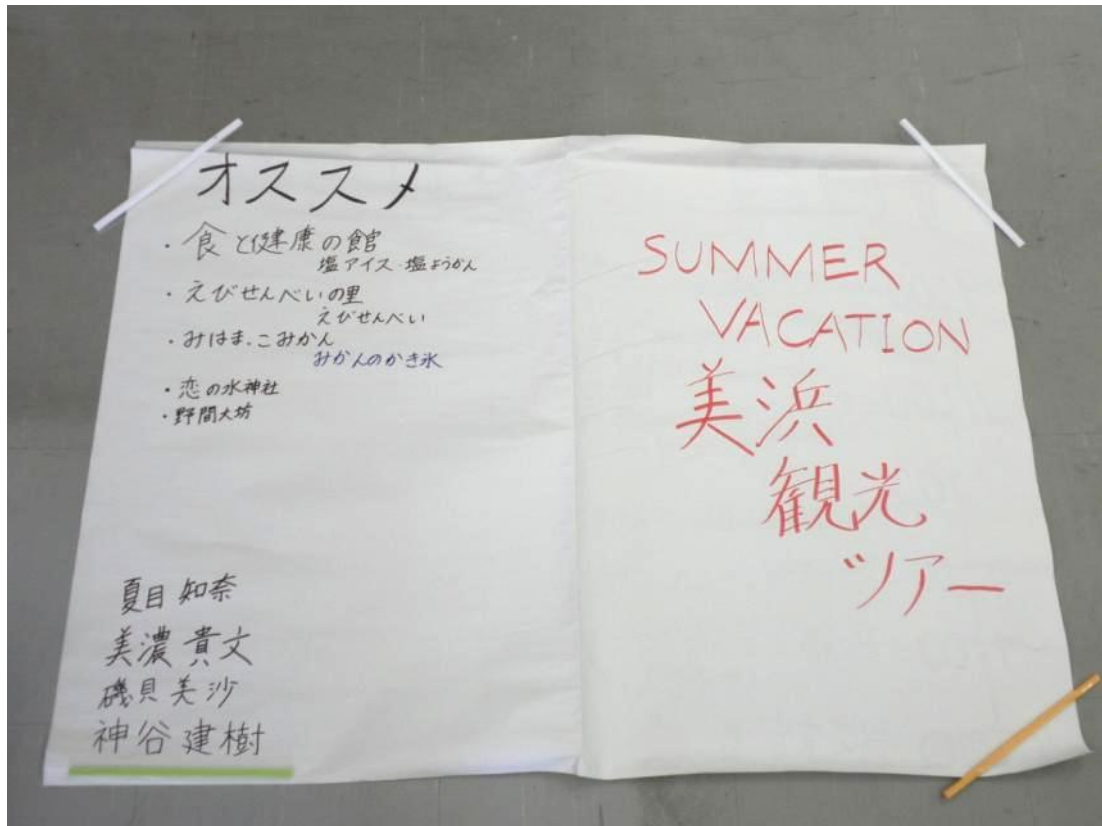 オススメ
・食と健康の館
塩アイス・塩ようかん
・えびせんべいの里
えびせんべい
・みはま・こみかん
みかんのかき氷
・恋の水神社
・野間大坊
夏目 知奈
美濃 貴文
磯貝 美沙
神谷 建樹
SUMMER
VACATION
美浜
観光
ツアー